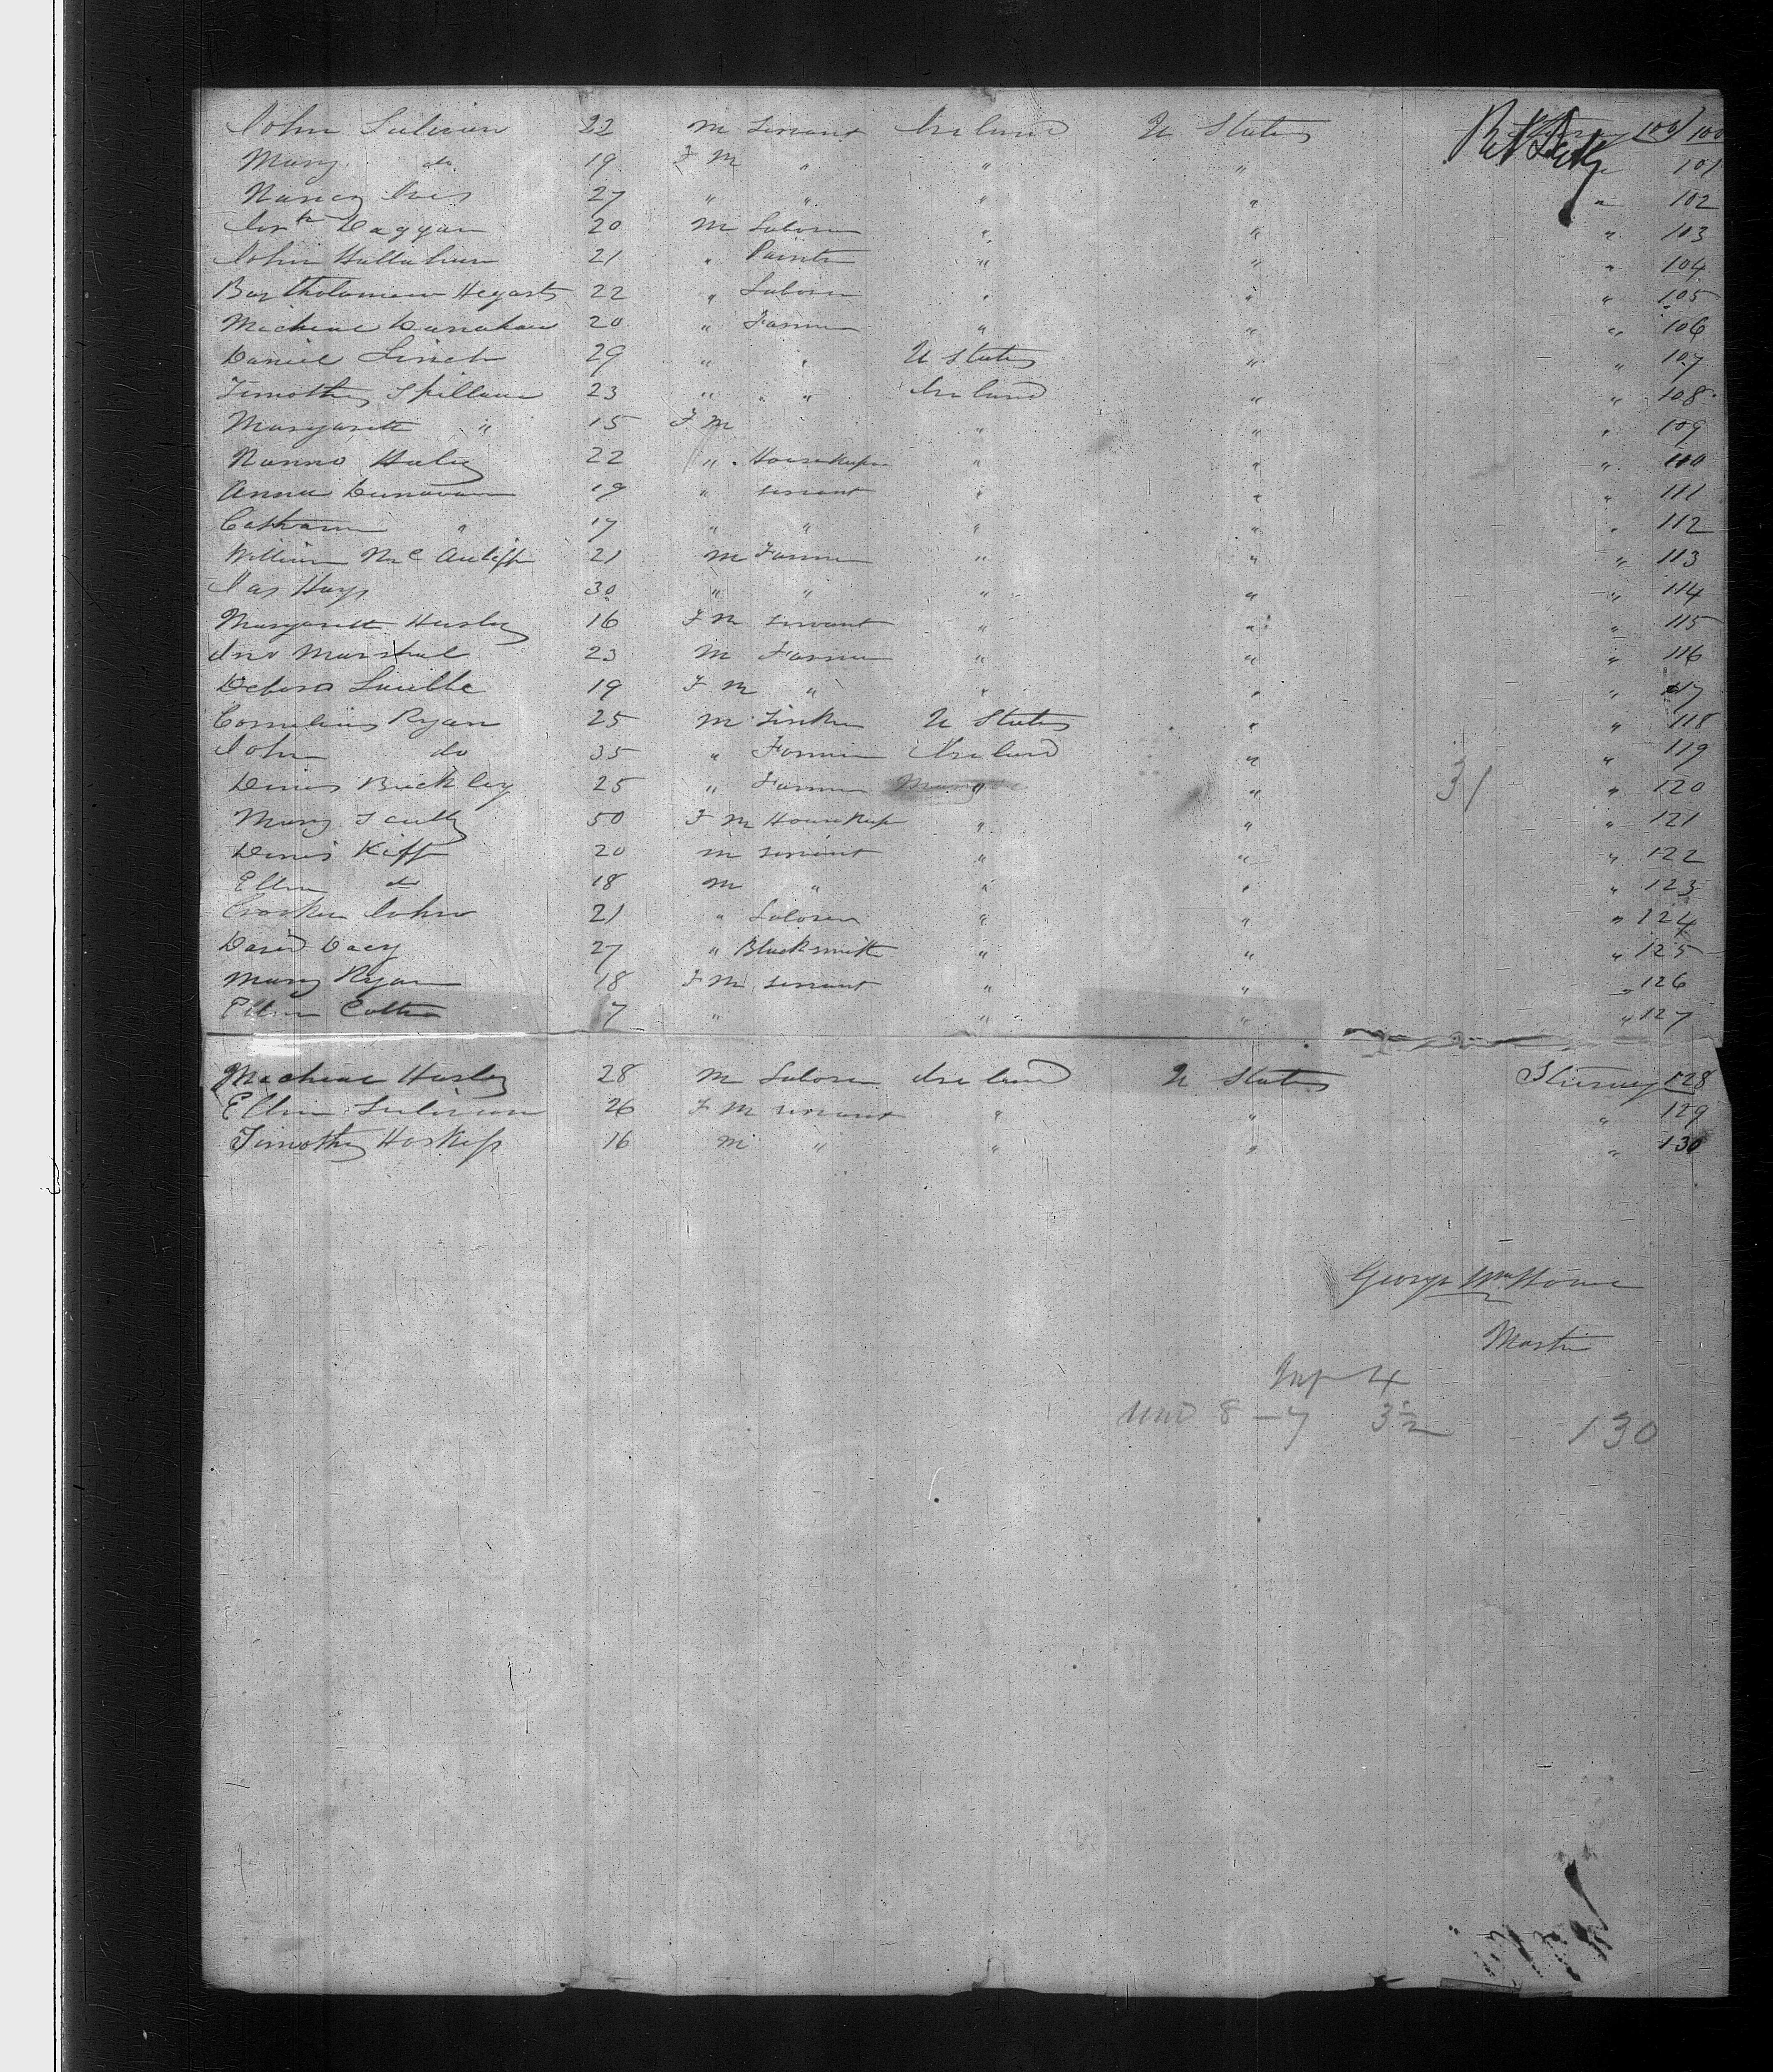 John Sulivan 22 m Servant Ireland U States 100
Mary do 19 F m " " " " 101
Nancy Ives 27 " " " " " 102
20 m Laborer " " " 103
John Hallahan 21 " Painter " " " 104
Bartholomew Hegarty 22 " Laborer " " " 105
Micheal Danahan 20 " Farmer " " " 106
Daniel Linch 29 " " U States " " 107
Timothy Spillane 23 " " Ireland " " 108
Margarett " 15 F m " " " 109
Nanno Haley 22 " Housekeeper " " " 110
Anna Dunavan 19 " servant " " " 111
Catharin " 17 " " " " " 112
William Mc Auliff 21 m Farmer " " " 113
Jas Hays 30 " " " " " 114
Margarett Hurley 16 F m servant " " " 115
Jno Marshal 23 m Farmer " " " 116
Debora 19 F m " " " " 117
Cornelius Ryan 25 m U States " " 118
John do 35 " Farmer Ireland " " 119
Denis Buckley 25 " Farmer " " 31 " 120
Mary Scully 50 F m House Keep " " " 121
Denis Kiff 20 m servant " " " 122
Ellen do 18 m " " " " 123
John 21 " Laborer " " " 124
David Dacy 27 " Blacksmith " " " 125
Mary Ryan 18 F m servant " " " 126
Ellen Cotter 7 " " " " 127
Micheal Hurley 28 m Laborer Ireland U States Steerage 128
Ellen Sulivan 26 F m servant " " " 129
Timothy Hoskiss 16 m " " " " 130
George Wm Howe
Master
Inf 4
Und 8 - 7 3½ 130